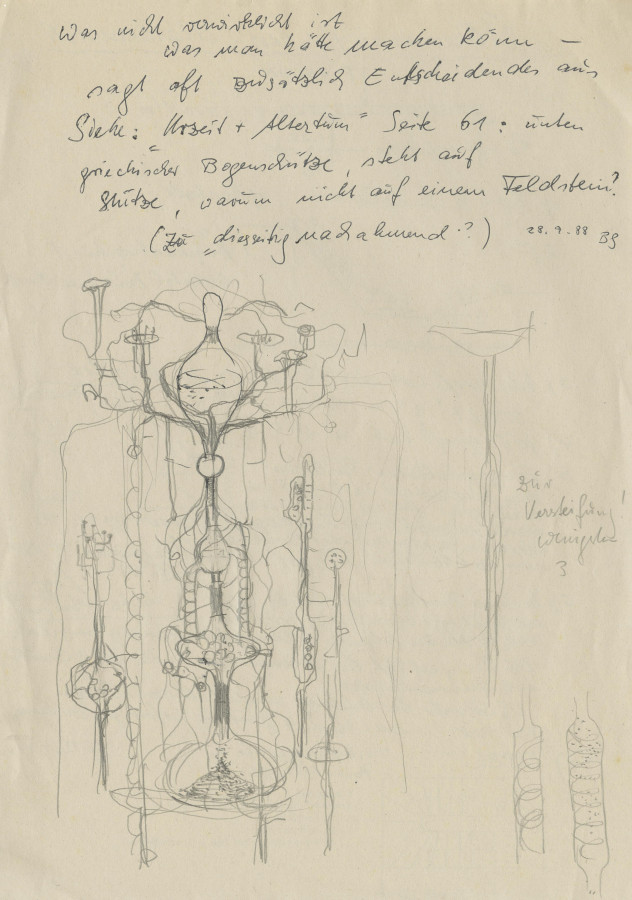 Was nicht verwirklicht ist
was man hätte machen könn –
sagt oft zusätzlich Entscheidendes aus
Siehe: "Urzeit + Altertum" Seite 61: unten
griechischer Bogenschütze, steht auf
Stütze, warum nicht auf einem Feldstein?
(Zu "diesseitig nachahmend"?) 28.9.88 BS
Zur
Versteifung!
wenigstens
3